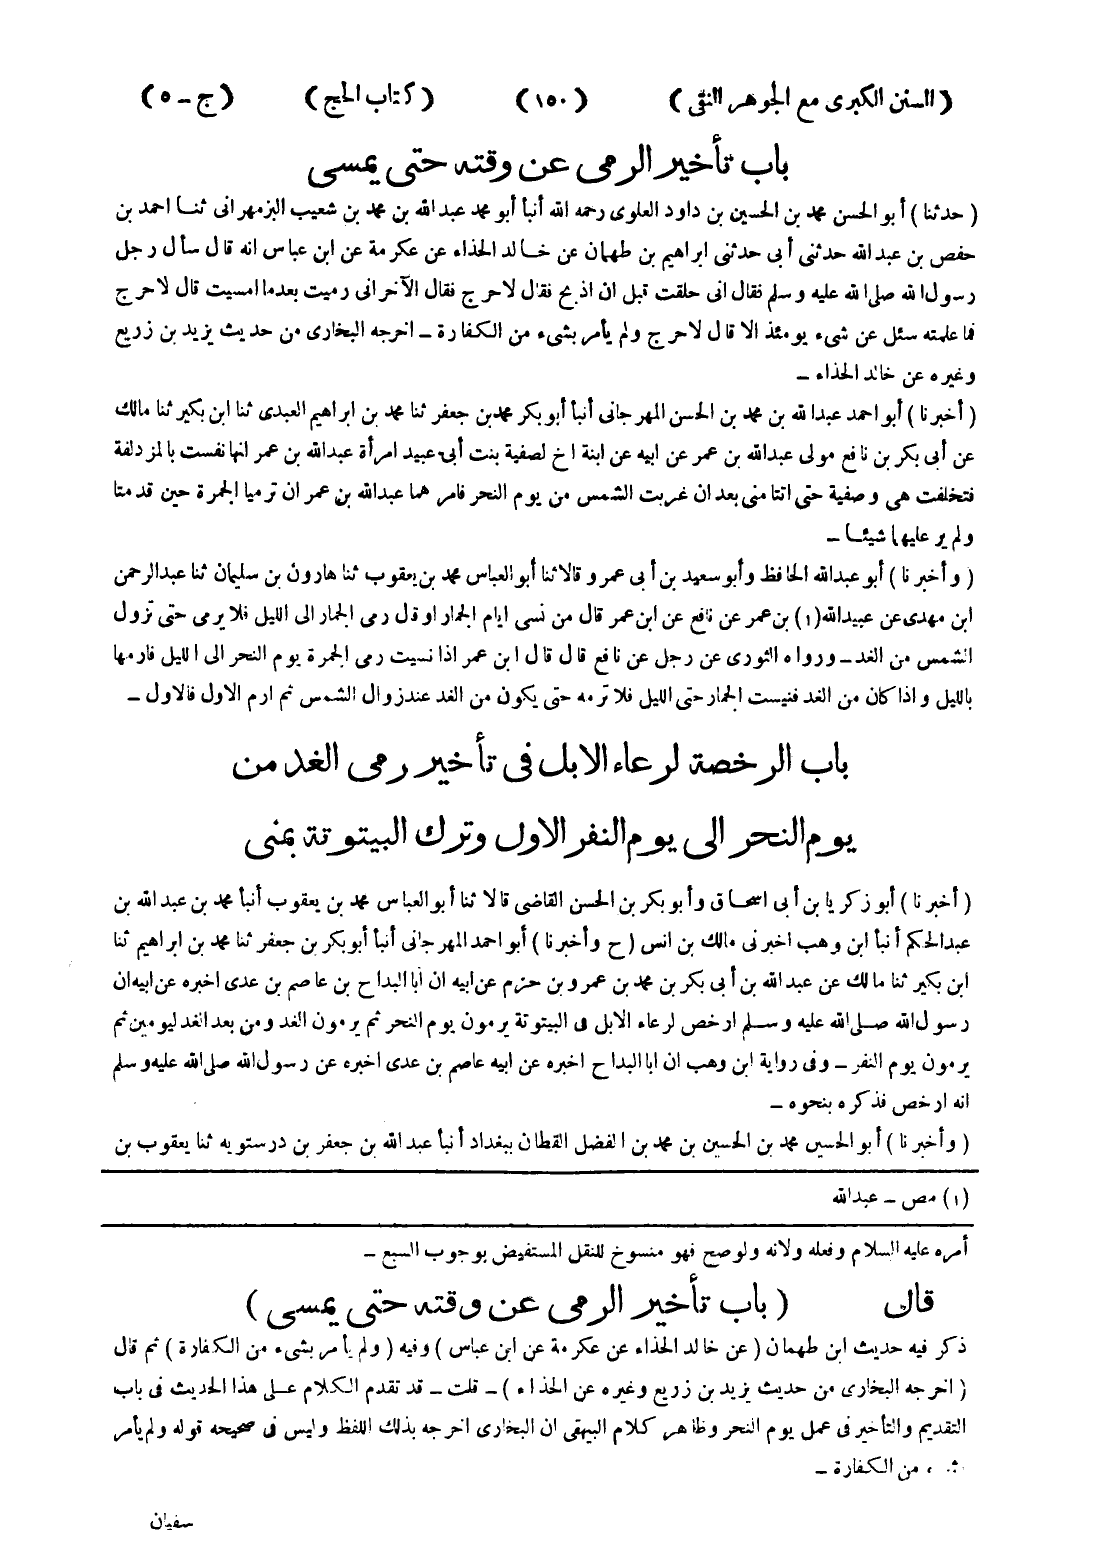 ( السنن الكبرى مع الجوهر النقى ) ( ١٥٠ ) ( كتاب الحج ) ( ج - ٥ )
باب تأخير الرمى عن وقته حتى يمسى
( حدثنا ) أبو الحسن محمد بن الحسين بن داود العلوى رحمه الله أنبأ أبو محمد عبدالله بن محمد بن شعيب البزمهرانى ثنا احمد بن
حفص بن عبدالله حدثنى أبى حدثنى ابراهيم بن طهمان عن خالد الحذاء عن عكرمة عن ابن عباس انه قال سأل رجل
رسول الله صلى الله عليه وسلم فقال انى حلقت قبل ان اذبح فقال لاحرج فقال الآخرانى رميت بعدما امسيت قال لاحرج
فما علمته سئل عن شىء يومئذ الا قال لاحرج ولم يأمر بشىء من الكفارة - اخرجه البخارى من حديث يزيد بن زريع
وغيره عن خالد الحذاء -
( أخبرنا ) أبو احمد عبدالله بن محمد بن الحسن المهرجانى أنبأ أبوبكر محمدبن جعفر ثنا محمد بن ابراهيم العبدى ثنا ابن بكير ثنا مالك
عن أبى بكر بن نافع مولى عبدالله بن عمر عن ابيه عن ابنة اخ لصفية بنت أبى عبيد امرأة عبدالله بن عمر انها نفست بالمزدلفة
فتخلفت هى وصفية حتى اتتا منى بعدان غربت الشمس من يوم النحر فامرهما عبدالله بن عمر ان ترميا الجمرة حين قدمتا
ولم ير عليها شيئا -
( وأخبرنا ) أبو عبدالله الحافظ وأبو سعيد بن أبى عمرو قالا ثنا أبو العباس محمد بن يعقوب ثنا هارون بن سليمان ثنا عبدالرحمن
ابن مهدى عن عبيدالله(١) بن عمر عن نافع عن ابن عمر قال من نسى ايام الجمار اوقال رمى الجمار الى الليل فلا يرمى حتى تزول
الشمس من الغد - ورواه الثورى عن رجل عن نافع قال قال ابن عمر اذا نسيت رمى الجمرة يوم النحر الى الليل فارمها
بالليل واذا كان من الغد فنيست الجمار حتى الليل فلا ترمه حتى يكون من الغد عند زوال الشمس ثم ارم الاول فالاول -
باب الرخصة لرعاء الابل فى تأخير رمى الغد من
يوم النحر الى يوم النفر الاول وترك البيتوتة بمنى
( أخبرنا ) أبو زكريا بن أبى اسحاق وأبو بكر بن الحسن القاضى قالا ثنا أبو العباس محمد بن يعقوب أنبأ محمد بن عبدالله بن
عبدالحكم أنبأ ابن وهب اخبرنى مالك بن انس ( ح وأخبرنا ) أبو احمد المهرجانى أنبأ أبوبكر بن جعفر ثنا محمد بن ابراهيم ثنا
ابن بكير ثنا مالك عن عبدالله بن أبى بكر بن محمد بن عمرو بن حزم عن ابيه ان ابا البداح بن عاصم بن عدى اخبره عن ابيه ان
رسول الله صلى الله عليه وسلم ارخص لرعاء الابل فى البيتوتة يرمون يوم النحر ثم يرمون الغد ومن بعد الغد ليومين ثم
يرمون يوم النفر - وفى رواية ابن وهب ان ابا البداح اخبره عن ابيه عاصم بن عدى اخبره عن رسول الله صلى الله عليه وسلم
انه ارخص فذكره بنحوه -
( وأخبرنا ) أبو الحسين محمد بن الحسين بن محمد بن الفضل القطان ببغداد أنبأ عبدالله بن جعفر بن درستويه ثنا يعقوب بن
(١) مص - عبدالله
أمره عليه السلام وفعله ولانه ولوصح فهو منسوخ للنقل المستفيض بوجوب السبع -
قال ( باب تأخير الرمى عن وقته حتى يمسى )
ذكر فيه حديث ابن طهمان ( عن خالد الحذاء عن عكرمة عن ابن عباس ) وفيه ( ولم يأمر بشىء من الكفارة ) ثم قال
( اخرجه البخارى من حديث يزيد بن زريع وغيره عن الحذاء ) - قلت - قد تقدم الكلام على هذا الحديث فى باب
التقديم والتأخير فى عمل يوم النحر وظاهر كلام البيهقى ان البخارى اخرجه بذلك اللفظ وليس فى صحيحه قوله ولم يأمر
من الكفارة -
سفيان